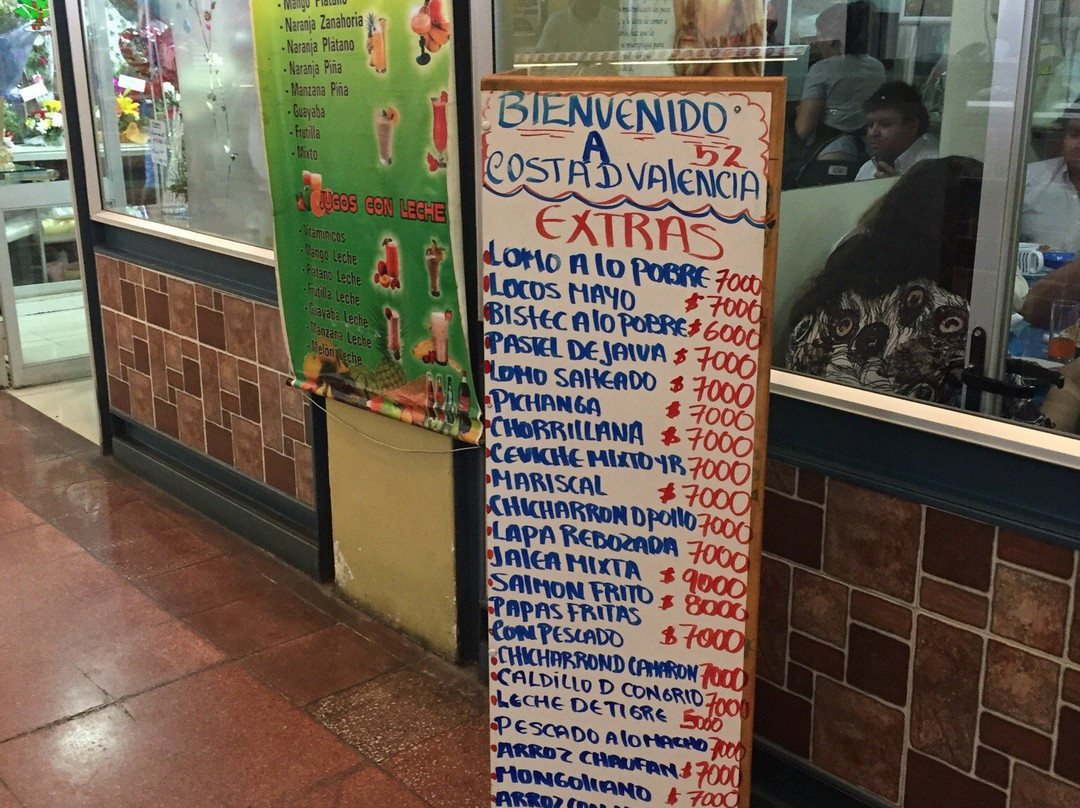 - Mango Platano
- Naranja Zanahoria
- Naranja Plátano
- Naranja Piña
- Manzana Piña
- Guayaba
- Frutilla
- Mixto
JUGOS CON LECHE
- Vitaminicos
- Mango Leche
- Platano Leche
- Frutilla Leche
- Guayaba Leche
- Manzana Leche
- Melón Leche
BIENVENIDO
A 52
COSTA D VALENCIA
EXTRAS
LOMO A LO POBRE 7000
LOCOS MAYO $7000
BISTEC A LO POBRE $6000
PASTEL DE JAIVA $7000
LOMO SALTEADO $7000
PICHANGA $7000
CHORRILLANA $7000
CEVICHE MIXTO Y R 7000
MARISCAL $7000
CHICHARRON D POLLO 7000
LAPA REBOZADA 7000
JALEA MIXTA $9000
SALMON FRITO $8000
PAPAS FRITAS
CON PESCADO $7000
CHICHARRON D CAMARON 7000
CALDILLO D CONGRIO 7000
LECHE DE TIGRE 5000
PESCADO A LO MACHO 7000
ARROZ CHAUFAN $7000
MONGOLIANO $7000
ARROZ CON